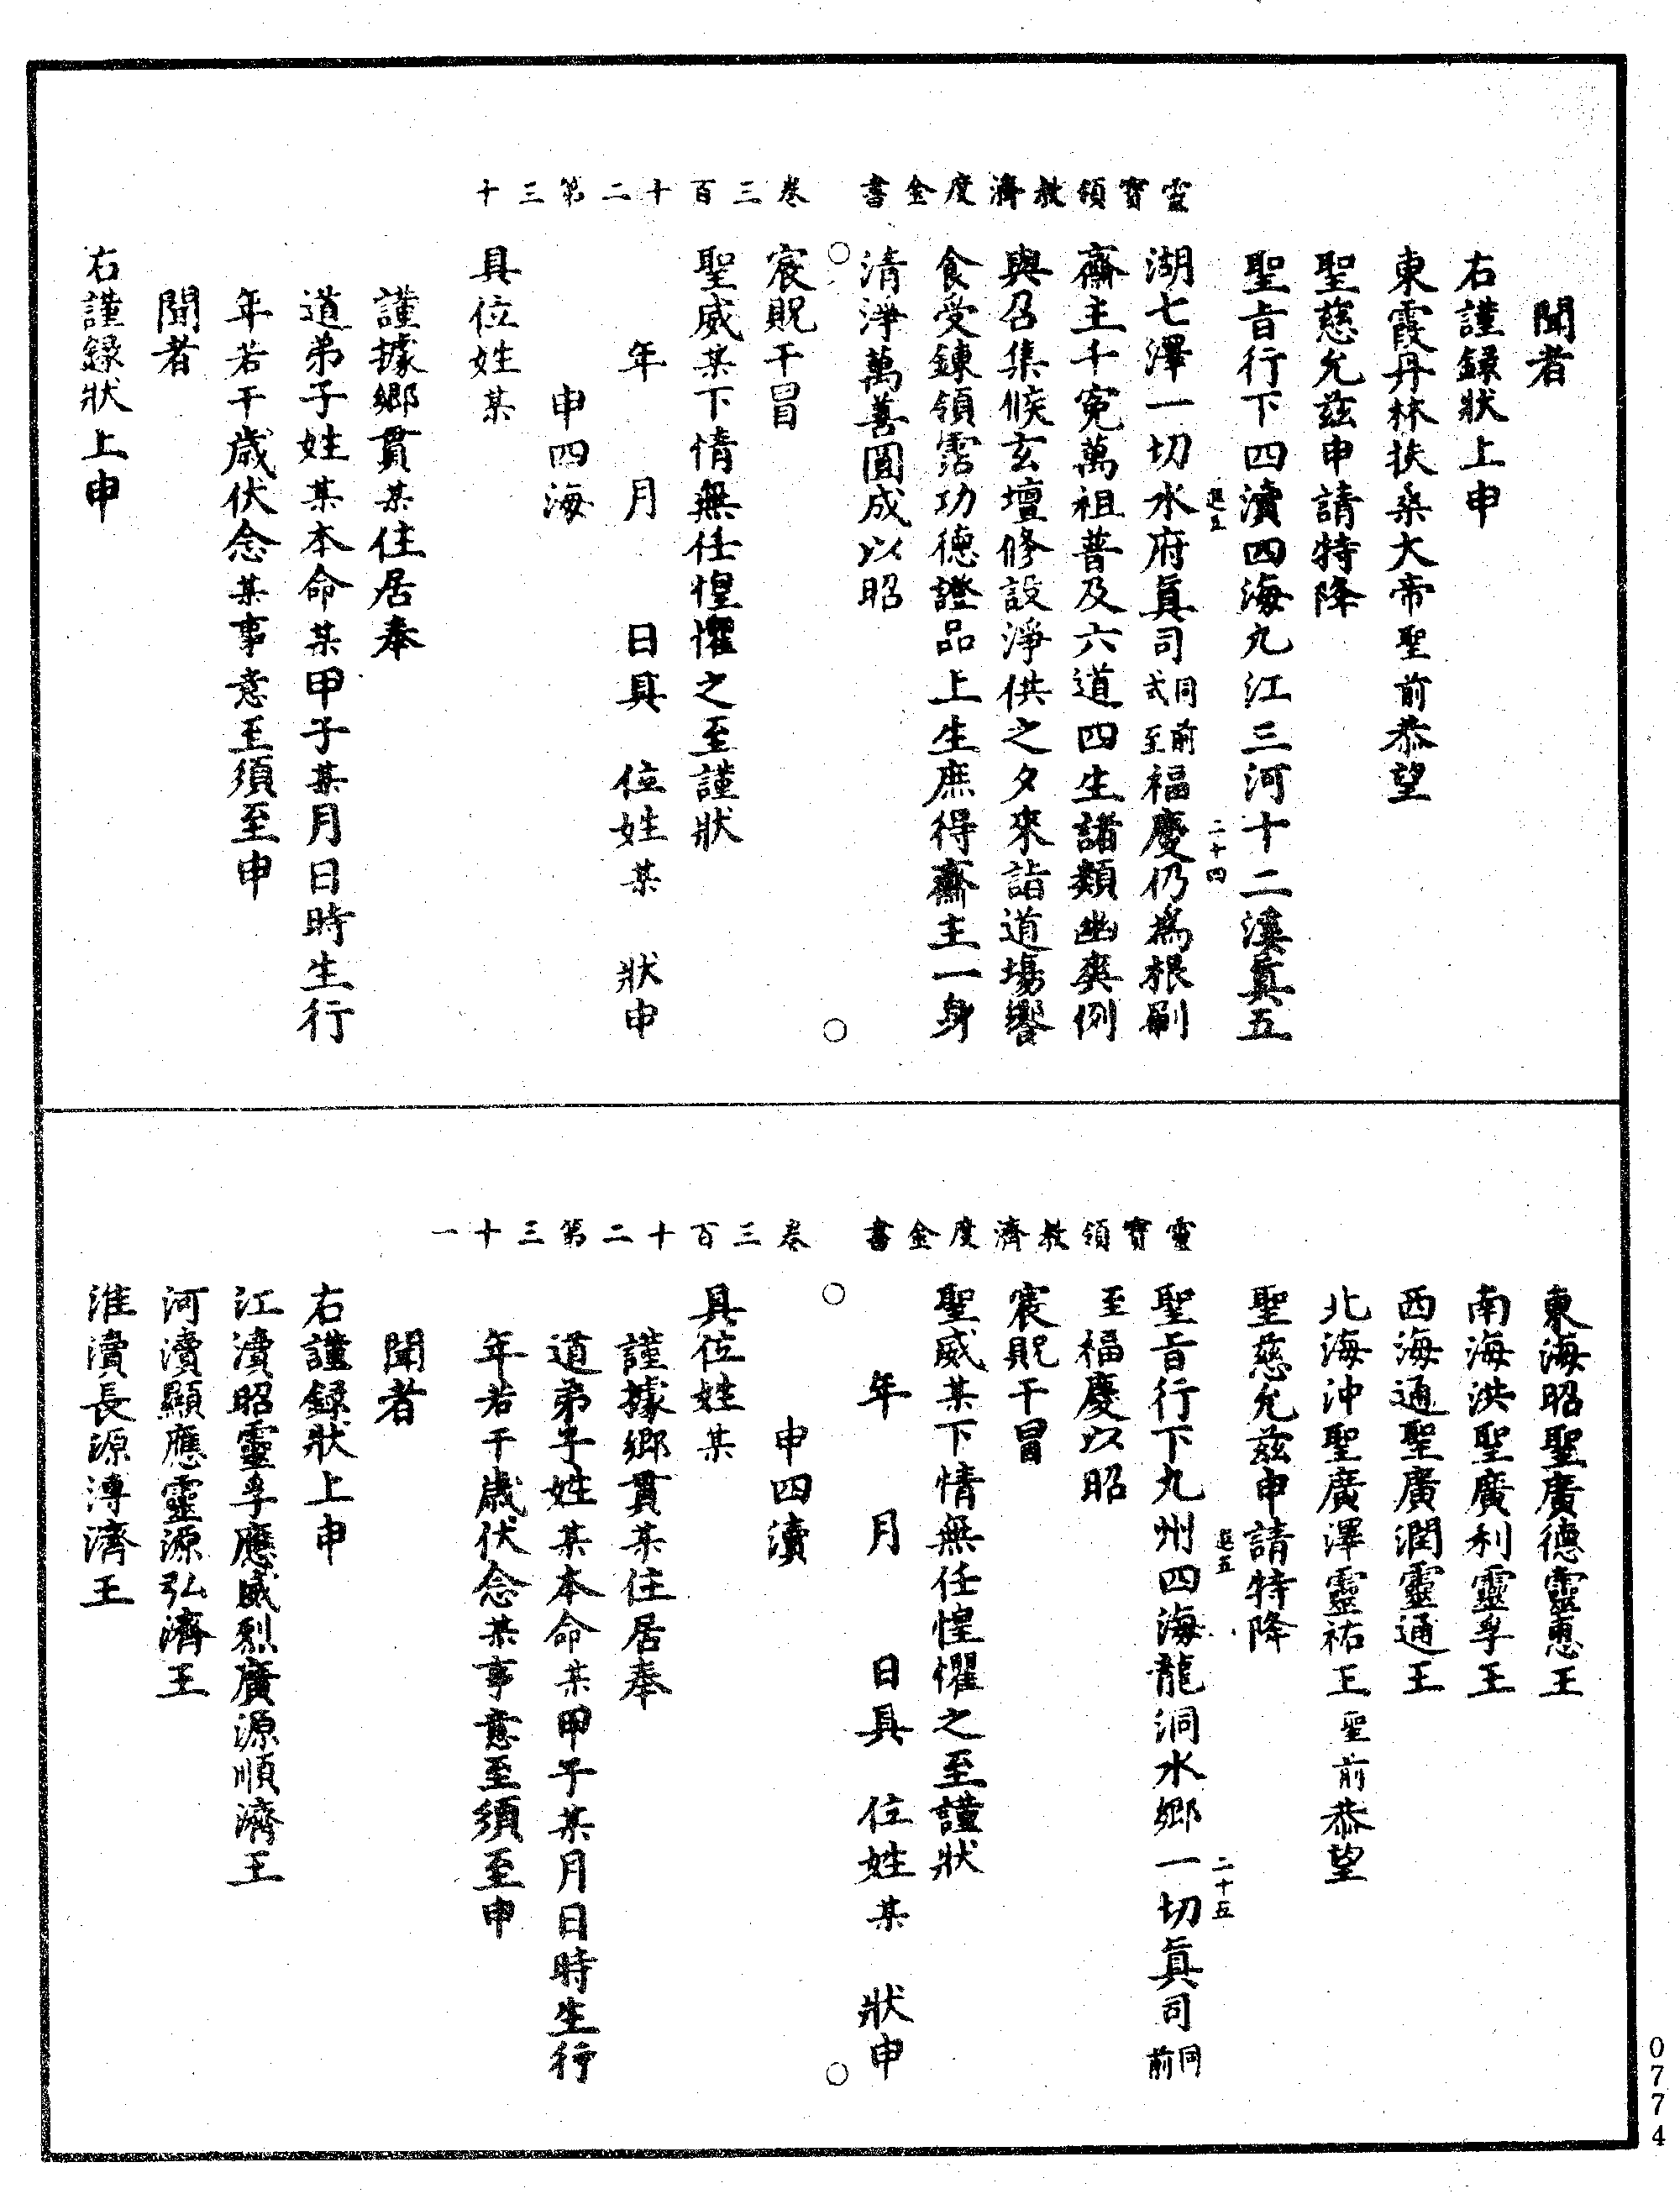 靈寶領教濟度金書　卷三百十二第三十
聞者
右謹録狀上申
東霞丹林扶桑大帝聖前恭望
聖慈允茲申請特降
聖旨行下四瀆四海九江三河十二溪眞五
湖七澤一切水府眞司同前式至福慶仍爲根刷
齋主千寃萬祖普及六道四生諸類幽爽例
與召集候玄壇修設淨供之夕來詣道場饗
食受鍊領霑功德證品上生庶得齋主一身
清淨萬善圓成以昭
宸貺干冒
聖威某下情無任惶懼之至謹狀
年　月　日具　位姓某　狀申
申四海
具位姓某
謹據鄉貫某住居奉
道弟子姓某本命某甲子某月日時生行
年若干歲伏念某事意至須至申
聞者
右謹録狀上申
二十四
靈寶領教濟度金書　卷三百十二第三十一
東海昭聖廣德靈惠王
南海洪聖廣利靈孚王
西海通聖廣潤靈通王
北海沖聖廣澤靈祐王聖前恭望
聖慈允茲申請特降
二十五
聖旨行下九州四海龍洞水鄉一切眞司同前
至福慶以昭
宸貺干冒
聖威某下情無任惶懼之至謹狀
年　月　日具　位姓某　狀申
申四瀆
具位姓某
謹據鄉貫某住居奉
道弟子姓某本命某甲子某月日時生行
年若干歲伏念某事意至須至申
聞者
右謹録狀上申
江瀆昭靈孚應威烈廣源順濟王
河瀆顯應靈源弘濟王
淮瀆長源溥濟王
0774